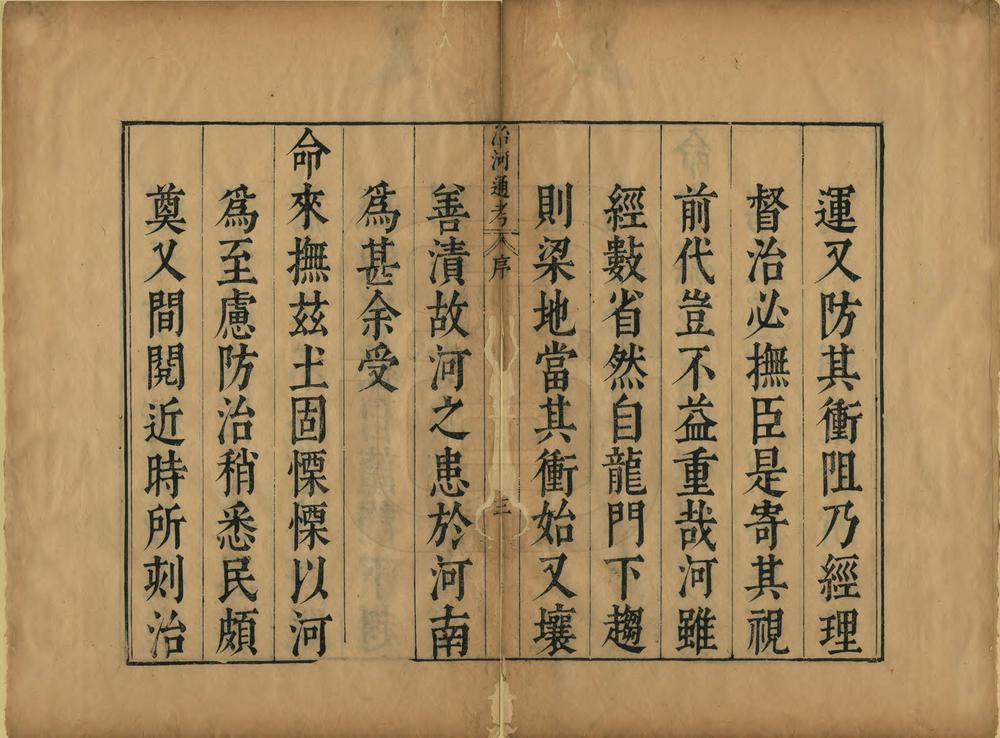 運又防其衝阻乃經理
督治必撫臣是寄其視
前代豈不益重哉河雖
經數省然自龍門下趨
則梁地當其衝始又壤
治河通考 序 三
善潰故河之患於河南
為甚余受
命來撫茲土固慄慄以河
為至慮防治稍悉民頗
奠又間閱近時所刻治